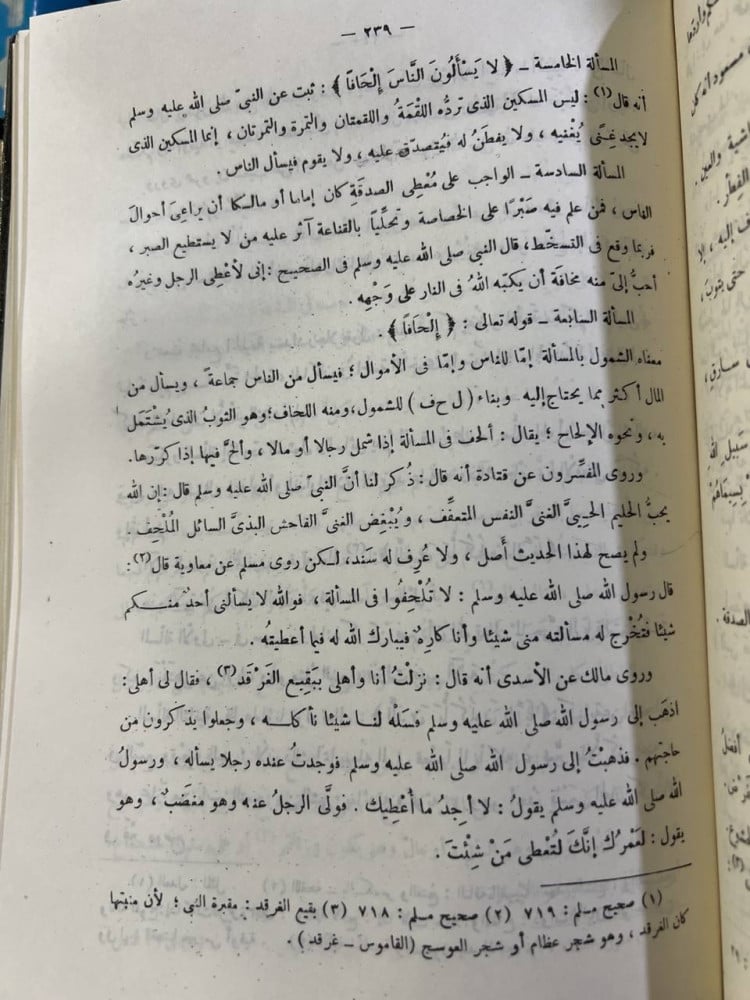 — ٢٣٩ —
المسألة الخامسة – ﴿ لا يَسْأَلُونَ النَّاسَ إلْحَافاً ﴾ : ثبت عن النبىّ صلى الله عليه وسلم
أنه قال(١) : ليس المسكين الذى تردّه اللقْمَةُ واللقمتان والتمرة والتمرتان ، إنما المسكين الذى
لا يجد غِنًى يُغْنيه ، ولا يفطَنُ له فيُتصدّق عليه ، ولا يقوم فيسأل الناس .
المسألة السادسة – الواجب على مُعْطِى الصدقةِ كان إماما أو مالكا أن يراعِىَ أحوالَ
الناس ، فمن علم فيه صَبْرًا على الخصاصة وتحلِّيًا بالقناعة آثر عليه من لا يستطيع الصبر ،
فربما وقع فى التسخّط، قال النبى صلى الله عليه وسلم فى الصحيح : إنى لأعْطِى الرجل وغيرُه
أحبُّ إلىّ منه مخافَة أن يكبّه اللهُ فى النار على وَجْهِه .
المسألة السابعة – قوله تعالى : ﴿ إلْحَافاً ﴾ .
معناه الشمول بالمسألة إمّا للناس وإمّا فى الأموال ؛ فيسأل من الناس جماعةً ، ويسأل من
المال أكثر مما يحتاج إليه وبناء ( ل ح ف ) للشمول، ومنه اللحاف؛ وهو الثوبُ الذى يُشْتَمَل
به ، ونحوه الإلحاح ؛ يقال : ألحف فى المسألة إذا شمل رجالا أو مالا ، وألحّ فيها إذا كرّرها.
وروى المفسِّرون عن قتادة أنه قال : ذُكر لنا أنَّ النبىّ صلى الله عليه وسلم قال : إن الله
يحبُّ الحليم الحَيِىَّ الغنىَّ النفس المتعفّف ، ويُبْغِض الغنىَّ الفاحش البذىَّ السائل المُلْحِف .
ولم يصح لهذا الحديث أَصل ، ولا عُرِف له سَند، لكن روى مسلم عن معاوية قال(٢) :
قال رسول الله صلى الله عليه وسلم : لا تُلْحِفُوا فى المسألة ، فوالله لا يسألنى أحدٌ منكم
شيئا فتُخْرِج له مسألته منى شيئا وأنا كارِهٌ فيبارك الله له فيما أعطيتهُ .
وروى مالك عن الأسدى أنه قال : نزلْتُ أنا وأهلى ببَقيع الغَرْقَد(٣) ، فقال لى أهلى :
اذهَب إلى رسول الله صلى الله عليه وسلم فسَلْه لنا شيئا نأكله ، وجعلوا يذكرون من
حاجتهم . فذهبْتُ إلى رسول الله صلى الله عليه وسلم فوجدتُ عنده رجلا يسأله ، ورسولُ
الله صلى الله عليه وسلم يقولُ : لا أجِدُ ما أعْطِيك . فولّى الرجلُ عنه وهو مغضَبٌ ، وهو
يقول : لَعَمْرُك إنَّكَ لتُعْطى مَنْ شِئْتَ .
(١) صحيح مسلم : ٧١٩ (٢) صحيح مسلم : ٧١٨ (٣) بقيع الغرقد : مقبرة النبى ؛ لأن منبتها
كان الغرقد ، وهو شجر عظام أو شجر العوسج (القاموس – غرقد ) .